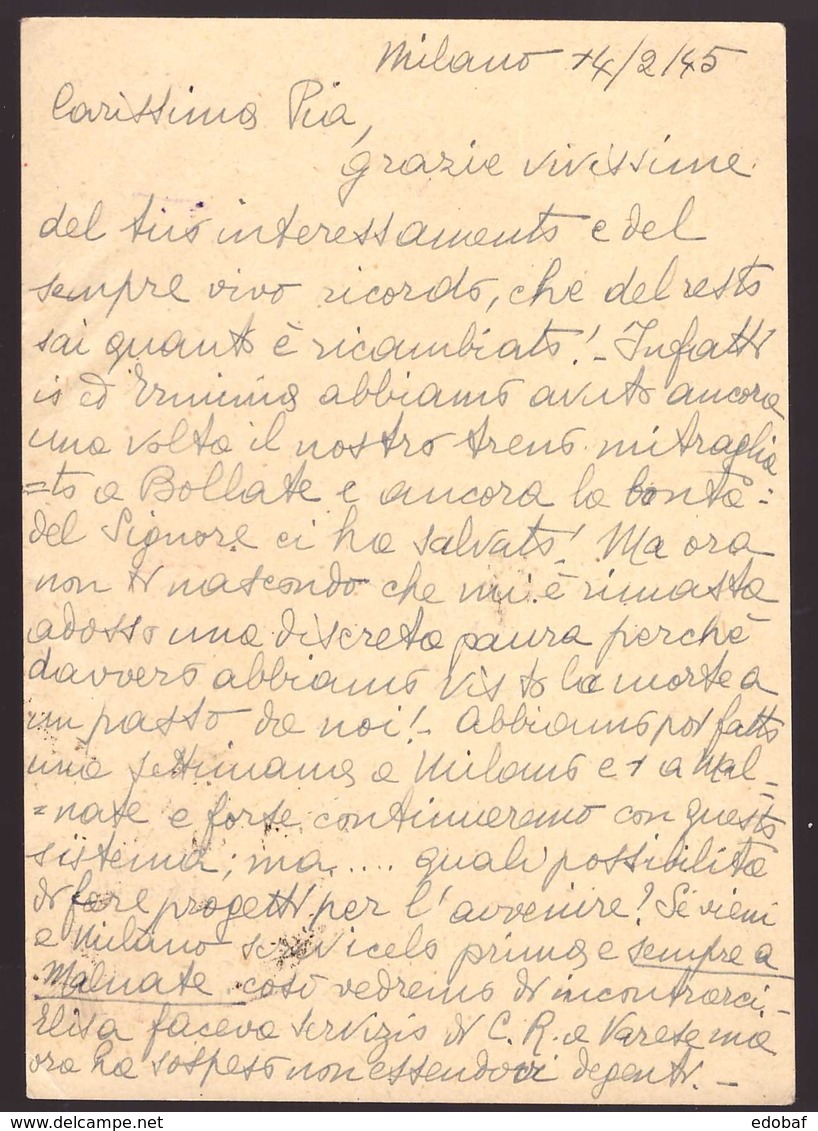 Milano 14/2/45
Carissima Pia,
grazie vivissime
del tuo interessamento e del
sempre vivo ricordo, che del resto
sai quanto è ricambiato! - Infatti
io ed Erminia abbiamo avuto ancora
una volta il nostro treno mitraglia
=to a Bollate e ancora la bontà
del Signore ci ha salvato! Ma ora
non ti nascondo che mi è rimasta
adosso una discreta paura perchè
davvero abbiamo visto la morte a
un passo da noi! - Abbiamo poi fatto
una settimana a Milano e 1 a Mal=
=nate e forse continueremo con questo
sistema; ma .... quali possibilità
di fare progetti per l'avvenire? Se vieni
a Milano scrivicelo prima e sempre a
Malnate così vedremo di incontrarci -
Elisa faceva servizio di C. R. a Varese ma
ora ha sospeso non essendovi degenti. -
edobaf